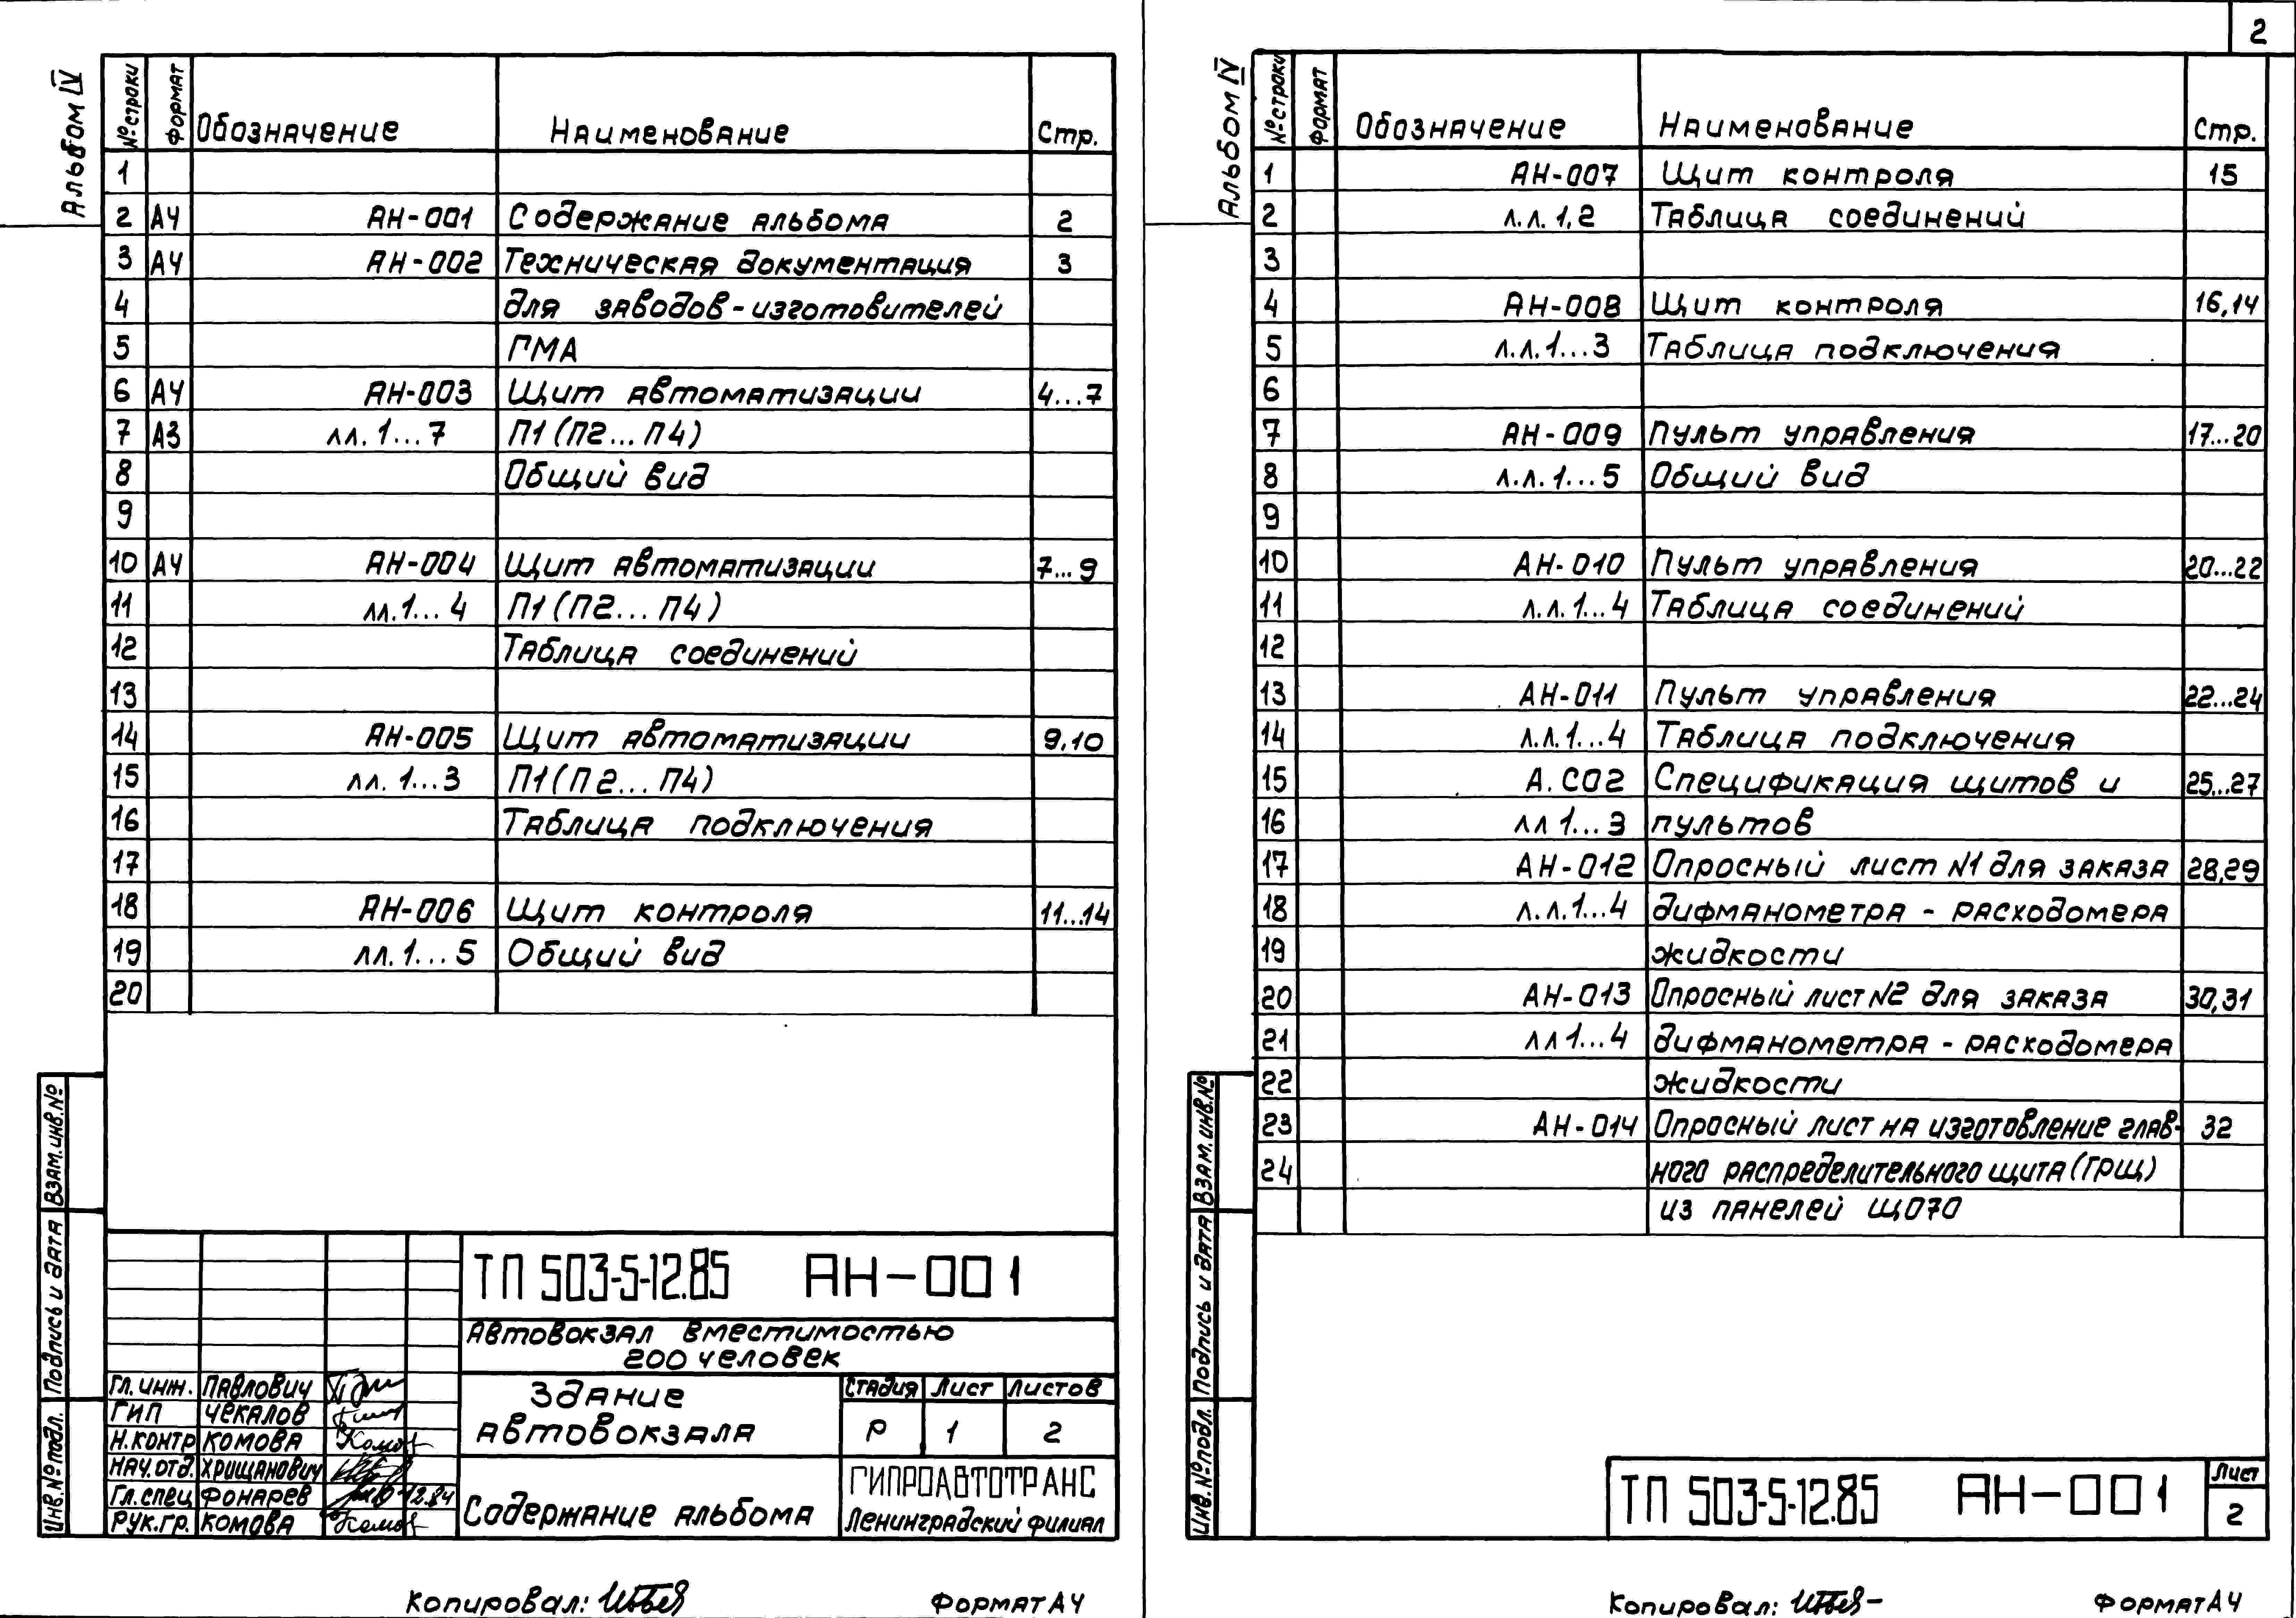 2
Альбом IV
№ строки Формат Обозначение Наименование Стр.
1
2 А4 АН-001 Содержание альбома 2
3 А4 АН-002 Техническая документация 3
4 для заводов-изготовителей
5 ГМА
6 А4 АН-003 Щит автоматизации 4...7
7 А3 лл. 1...7 П1 (П2...П4)
8 Общий вид
9
10 А4 АН-004 Щит автоматизации 7...9
11 лл. 1...4 П1 (П2...П4)
12 Таблица соединений
13
14 АН-005 Щит автоматизации 9,10
15 лл. 1...3 П1 (П2...П4)
16 Таблица подключения
17
18 АН-006 Щит контроля 11...14
19 лл. 1...5 Общий вид
20
Взам. инв. №
Подпись и дата
Инв. № подл.
ТП 503-5-12.85 АН-001
Автовокзал вместимостью
200 человек
Гл. инж. Павлович
ГИП Чекалов
Н. контр Комова
Нач. отд. Хрищанович
Гл. спец Фонарев 12.84
Рук. гр. Комова
Здание
автовокзала
Стадия Лист Листов
Р 1 2
Содержание альбома
ГИПРОАВТОТРАНС
Ленинградский филиал
Копировал:
Формат А4
Альбом IV
№ строки Формат Обозначение Наименование Стр.
1 АН-007 Щит контроля 15
2 л.л. 1,2 Таблица соединений
3
4 АН-008 Щит контроля 16,14
5 л.л. 1...3 Таблица подключения
6
7 АН-009 Пульт управления 17...20
8 л.л. 1...5 Общий вид
9
10 АН-010 Пульт управления 20...22
11 л.л. 1...4 Таблица соединений
12
13 АН-011 Пульт управления 22...24
14 л.л. 1...4 Таблица подключения
15 А.СО2 Спецификация щитов и 25...27
16 лл 1...3 пультов
17 АН-012 Опросный лист N1 для заказа 28,29
18 л.л. 1...4 дифманометра - расходомера
19 жидкости
20 АН-013 Опросный лист N2 для заказа 30,31
21 лл 1...4 дифманометра - расходомера
22 жидкости
23 АН-014 Опросный лист на изготовление глав- 32
24 ного распределительного щита (ГРЩ)
из панелей ЩО70
Взам. инв. №
Подпись и дата
Инв. № подл.
ТП 503-5-12.85 АН-001
Лист
2
Копировал:
Формат А4